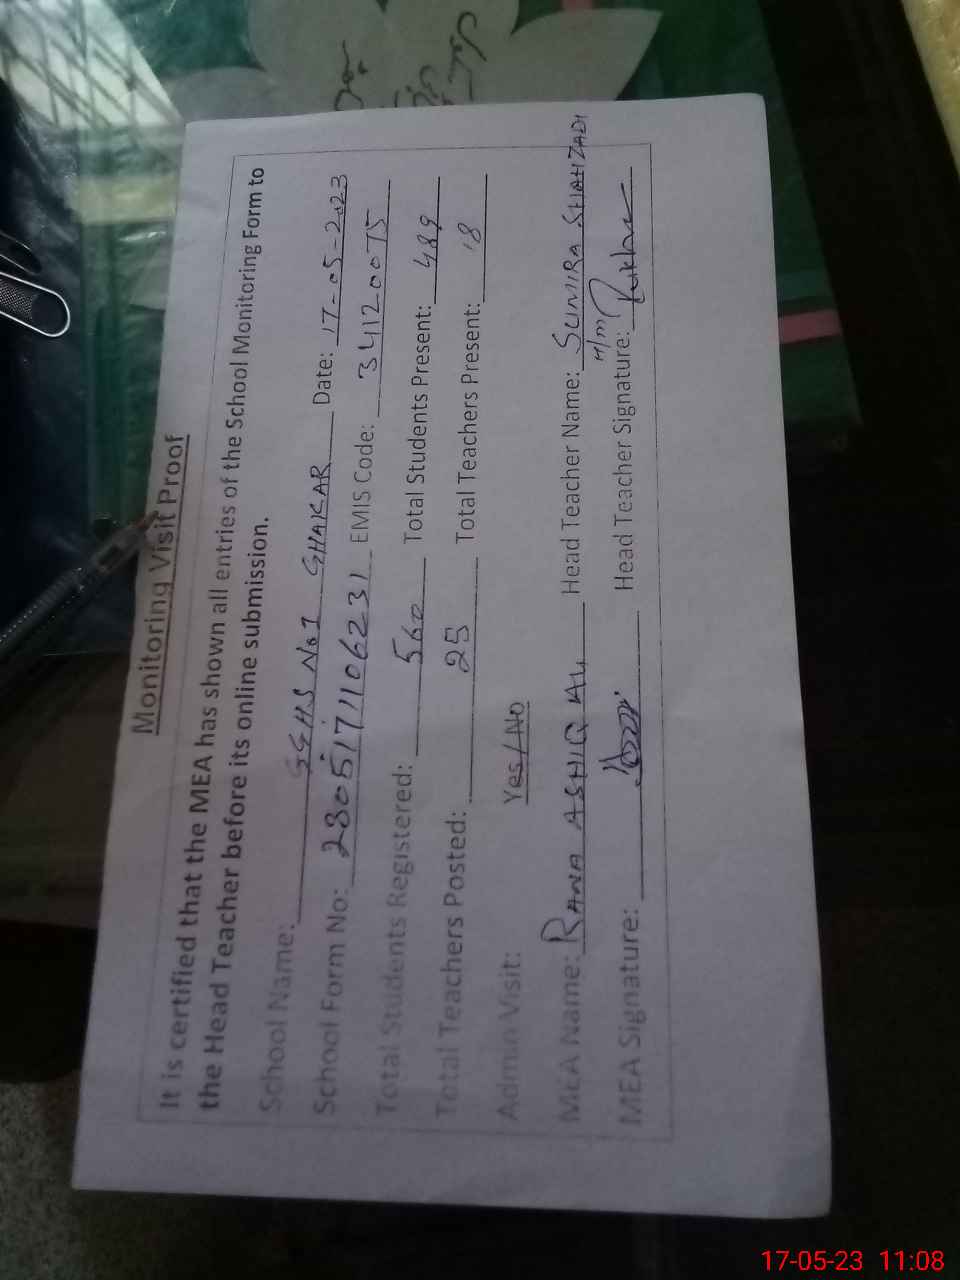 Monitoring Visit Proof
It is certified that the MEA has shown all entries of the School Monitoring Form to
the Head Teacher before its online submission.
School Name: GGHS No1 GHAKAR Date: 17-05-2023
School Form No: 2305171106231 EMIS Code: 34120075
Total Students Registered: 560 Total Students Present: 489
Total Teachers Posted: 25 Total Teachers Present: 18
Admin Visit: Yes/No
MEA Name: RANA ASHIQ ALI Head Teacher Name: SUMIRA SHAHZADI
MEA Signature: Head Teacher Signature:
17-05-23 11:08